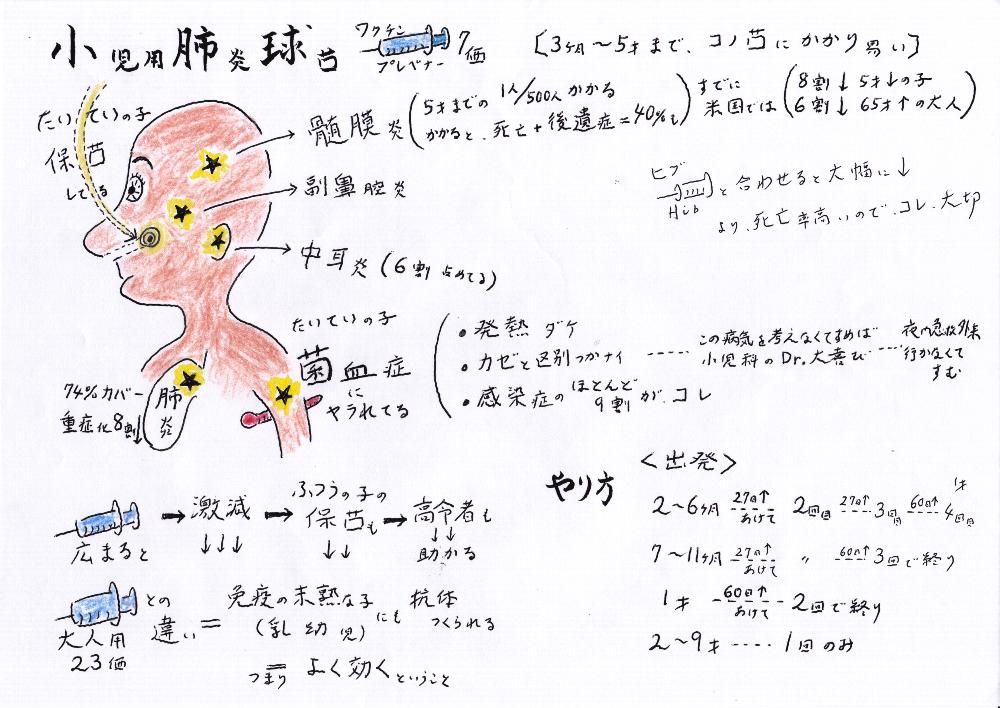 小児用肺炎球菌
ワクチン
プレベナー
7価
〔3ヶ月～5才まで、コノ菌にかかり易い〕
たいていの子
保菌
してる
髄膜炎
5才までの 1人/500人 かかる
かかると、死亡+後遺症=40%も
すでに
米国では
8割↓ 5才↓の子
6割↓ 65才↑の大人
副鼻腔炎
ヒブ
Hib
と合わせると大幅に↓
より、死亡率高いので、コレ、大切
中耳炎(6割占めてる)
たいていの子
菌血症
に
ヤラれてる
・発熱ダケ
・カゼと区別つかナイ
・感染症のほとんど9割がコレ
この病気を考えなくてすめば
小児科のDr.大喜び
夜間救急外来
行かなくて
すむ
肺炎
74%カバー
重症化8割↓
やり方
<出発>
2～6ヶ月 27日↑あけて 2回目 27日↑ 3回目 60日↑ 1才 4回目
7～11ヶ月 27日↑あけて 〃 60日↑ 3回で終り
1才 60日↑あけて 2回で終り
2～9才 1回のみ
広まると
➡激減
↓↓↓
➡ふつうの子の
保菌も
↓↓
➡高令者も
↓↓
助かる
大人用
23価
との
違い
=
免疫の未熟な子
(乳幼児)
にも
抗体
つくられる
つまり よく効くということ